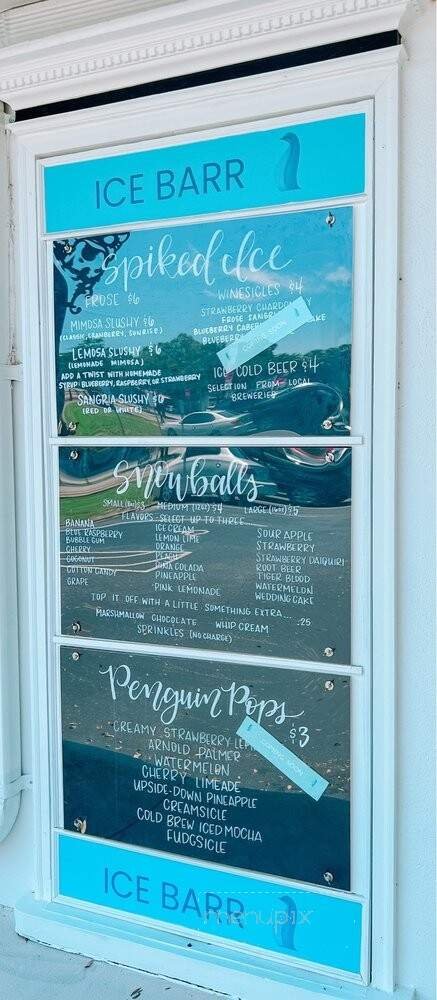 ICE BARR
Spiked Ice
FROSE $6
MIMOSA SLUSHY $6
(CLASSIC, CRANBERRY, SUNRISE)
LEMOSA SLUSHY $6
(LEMONADE MIMOSA)
ADD A TWIST WITH HOMEMADE
SYRUP: BLUEBERRY, RASPBERRY, OR STRAWBERRY
SANGRIA SLUSHY $6
(RED OR WHITE)
WINESICLES $4
STRAWBERRY CHARDONNAY
FROSE SANGRIA
BLUEBERRY
BLUEBERRY
COMING SOON
ICE COLD BEER $4
SELECTION FROM LOCAL
BREWERIES
Snowballs
SMALL $3 MEDIUM (12oz) $4 LARGE (16oz) $5
FLAVORS - SELECT UP TO THREE
BANANA
BLUE RASPBERRY
BUBBLE GUM
CHERRY
COCONUT
COTTON CANDY
GRAPE
ICE CREAM
LEMON LIME
ORANGE
PEACH
PINA COLADA
PINEAPPLE
PINK LEMONADE
SOUR APPLE
STRAWBERRY
STRAWBERRY DAIQUIRI
ROOT BEER
TIGER BLOOD
WATERMELON
WEDDING CAKE
TOP IT OFF WITH A LITTLE SOMETHING EXTRA... .25
MARSHMALLOW CHOCOLATE WHIP CREAM
SPRINKLES (NO CHARGE)
Penguin Pops
$3
CREAMY STRAWBERRY
COMING SOON
ARNOLD PALMER
WATERMELON
CHERRY LIMEADE
UPSIDE-DOWN PINEAPPLE
CREAMSICLE
COLD BREW ICED MOCHA
FUDGSICLE
ICE BARR
menupix